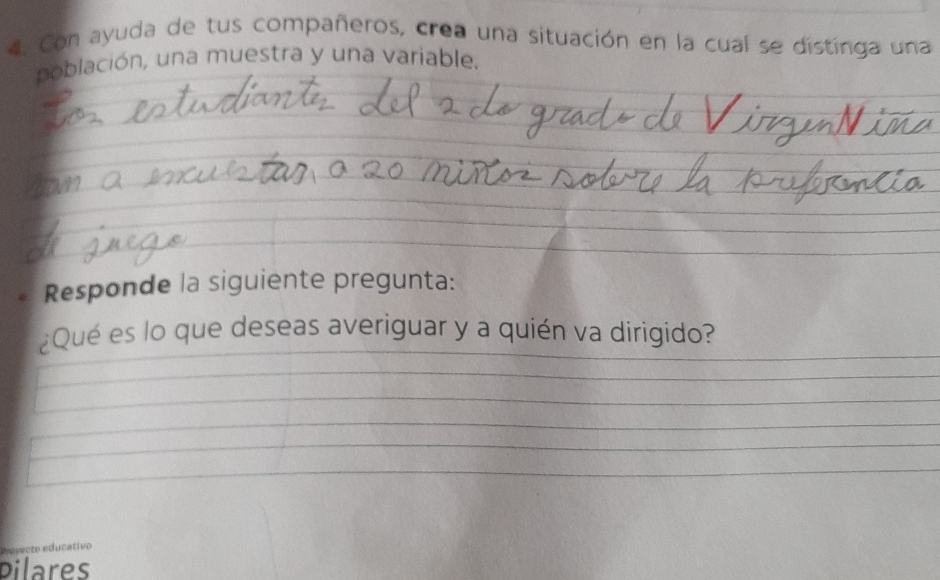 4. Con ayuda de tus compañeros, crea una situación en la cual se distinga una
población, una muestra y una variable.
Los estudiantes del 2do grado de Virgen Niña
van a encuestar, a 20 niños sobre la preferencia
de juego
Responde la siguiente pregunta:
¿Qué es lo que deseas averiguar y a quién va dirigido?
Proyecto educativo
Pilares